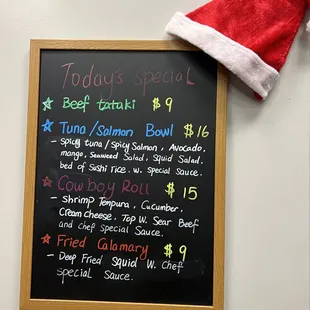 Today's special
Beef tataki $9
Tuna/Salmon Bowl $16
- Spicy tuna / Spicy Salmon, Avocado,
mango, Seaweed Salad, Squid Salad.
bed of Sushi rice. w. Special Sauce.
Cowboy Roll $15
- shrimp Tempura, Cucumber.
Cream cheese. Top W. Sear Beef
and chef special Sauce.
Fried Calamary $9
- Deep Fried Squid W. Chef
special Sauce.